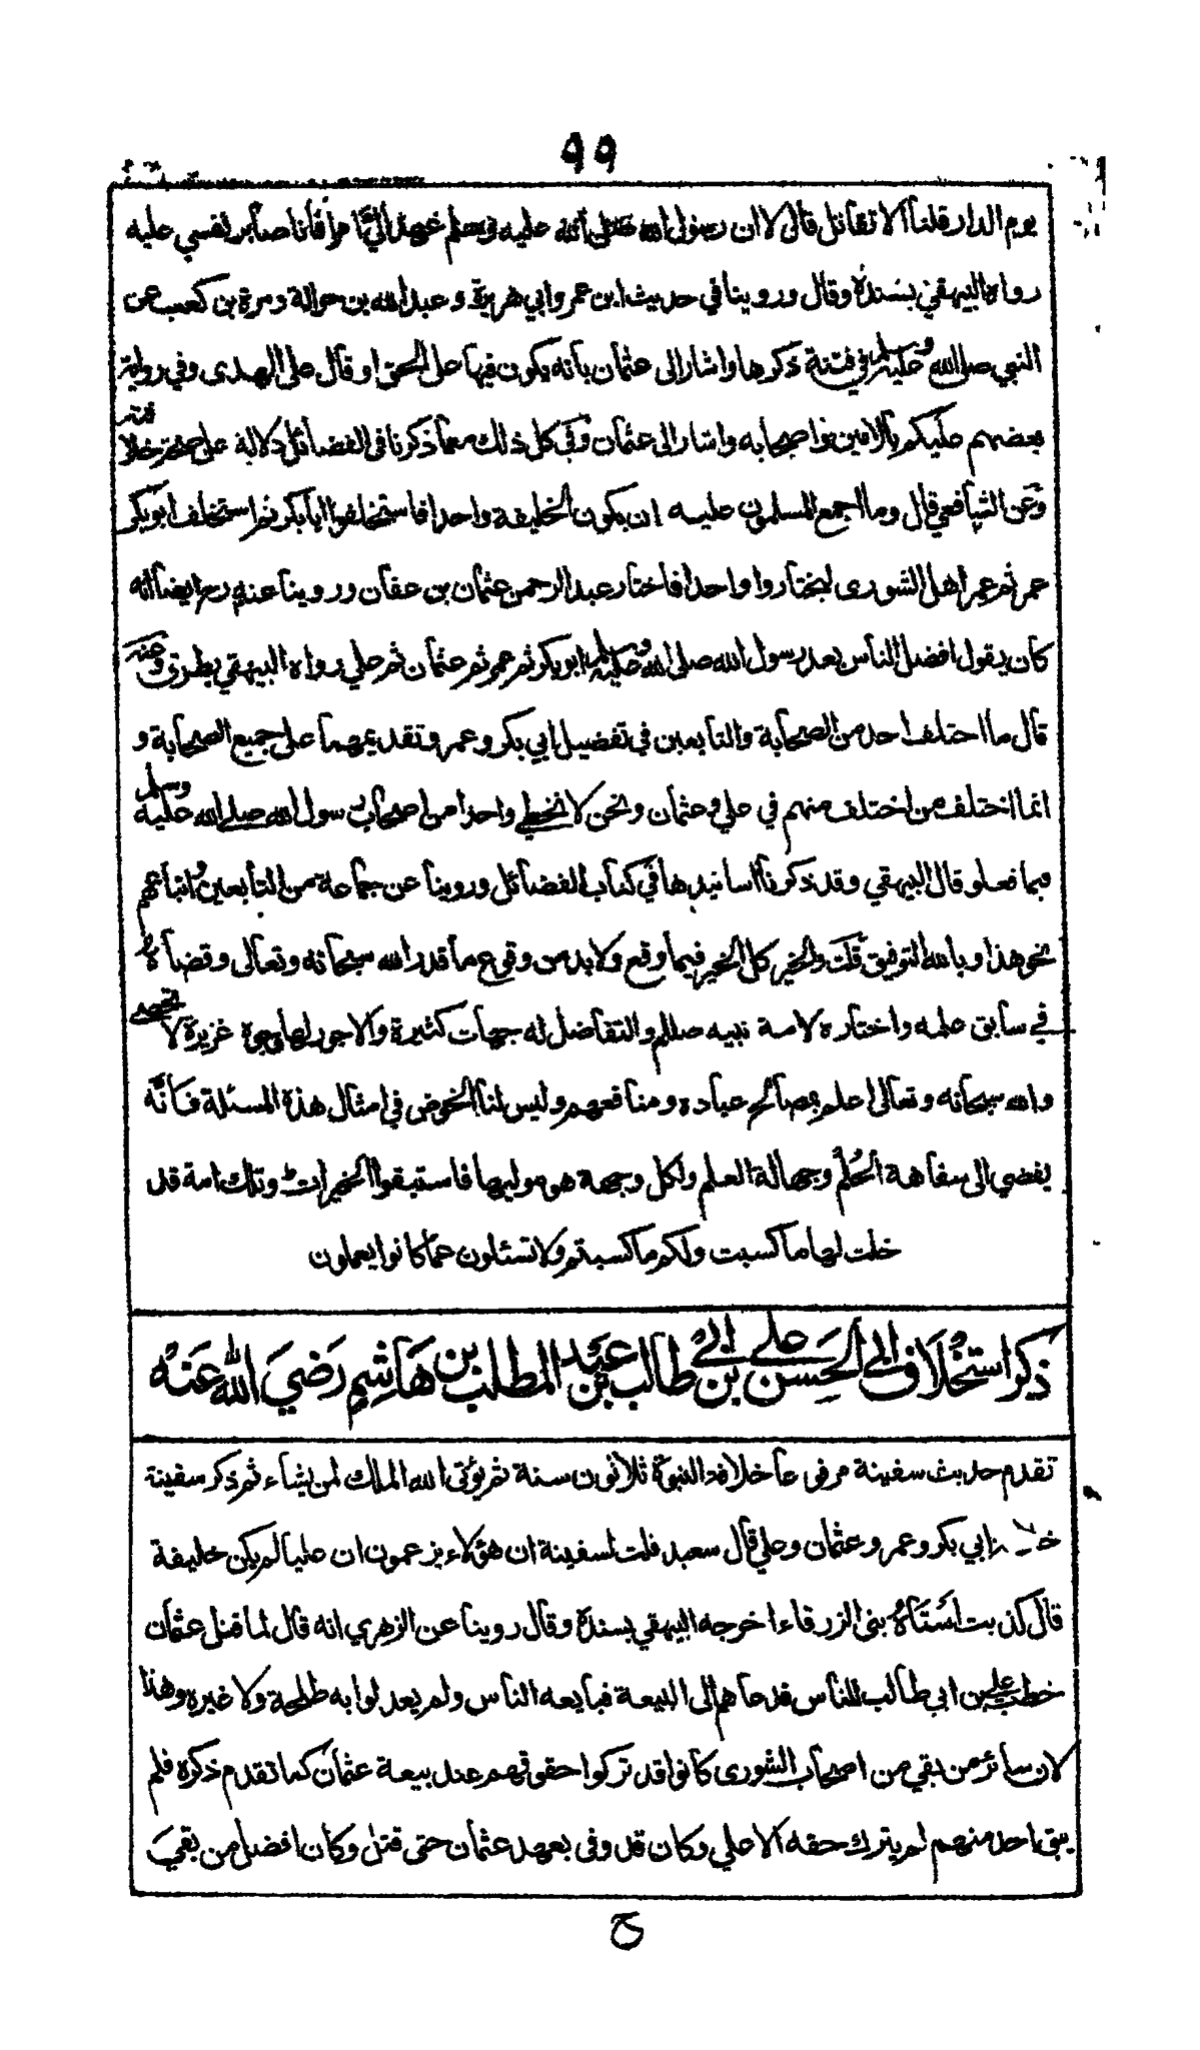 ٩٩
يوم الدار قلنا الا تقاتل قال لا ان رسول الله صلى الله عليه وسلم عهد الي امرا فانا صابر نفسي عليه
رواه البيهقي بسنده وقال وروينا في حديث ابن عمر وابي هريرة وعبد الله بن حوالة ومرة بن كعب عن
النبي صلى الله عليه وسلم في فتنة ذكرها واشار الى عثمان بانه يكون فيها على الحق او قال على الهدى وفي رواية
بعضهم عليكم بالامين واصحابه واشار الى عثمان وفي كل ذلك مع ما ذكرنا في الفضائل دلالة على صحة خلافته
وعن الشافعي قال وما اجمع المسلمون عليه ان يكون الخليفة واحدا فاستخلفوا ابا بكر ثم استخلف ابو بكر
عمر ثم عمر اهل الشورى ليختاروا واحدا فاختار عبد الرحمن عثمان بن عفان وروينا عنه رح ايضا انه
كان يقول افضل الناس بعد رسول الله صلى الله عليه وسلم ابو بكر ثم عمر ثم عثمان ثم علي رواه البيهقي بطرق وعنه
قال ما اختلف احد من الصحابة والتابعين في تفضيل ابي بكر وعمر وتقديمهما على جميع الصحابة و
انما اختلف من اختلف منهم في علي وعثمان ونحن لا نخطي واحدا من اصحاب رسول الله صلى الله عليه وسلم
فيما فعلو قال البيهقي وقد ذكرنا اسانيدها في كتاب الفضائل وروينا عن جماعة من التابعين واتباعهم
نحو هذا وبالله التوفيق قلت والخير كل الخير فيما وقع ولا بد من وقوع ما قدر الله سبحانه وتعالى وقضاه
في سابق علمه واختاره لامة نبيه صللم والتفاضل له جهات كثيرة والاجور لها وجوه غزيرة لا تحصى
والله سبحانه وتعالى اعلم بمصالح عباده ومنافعهم وليس لنا الخوض في امثال هذه المسئلة فانه
يفضي الى سفاهة الحلم وجهالة العلم ولكل وجهة هو موليها فاستبقوا الخيرات وتلك امة قد
خلت لها ما كسبت ولكم ما كسبتم ولا تسئلون عما كانوا يعملون
ذكر استخلاف ابي الحسن علي بن ابي طالب بن عبد المطلب بن هاشم رضي الله عنه
تقدم حديث سفينة مرفوعا خلافة النبوة ثلاثون سنة ثم يؤتى الله الملك لمن يشاء ثم ذكر سفينة
ابي بكر وعمر وعثمان وعلي قال سعيد قلت لسفينة ان هؤلاء يزعمون ان عليا لم يكن خليفة
قال كذبت استاه بنى الزرقاء اخرجه البيهقي بسنده وقال روينا عن الزهري انه قال لما قتل عثمان
خطب علي بن ابي طالب للناس فدعاهم الى البيعة فبايعه الناس ولم يعدلوا به طلحة ولا غيره وهذا
لان سائر من بقي من اصحاب الشورى كانوا قد تركوا حقوقهم عند بيعة عثمان كما تقدم ذكره فلم
يبق احد منهم لم يترك حقه الا علي وكان قد وفى بعهد عثمان حتى قتل وكان افضل من بقي
ح